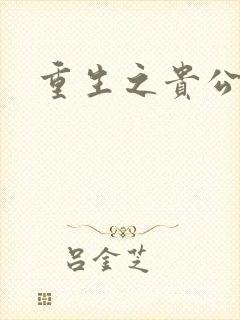 重生之貴公
呂金芝